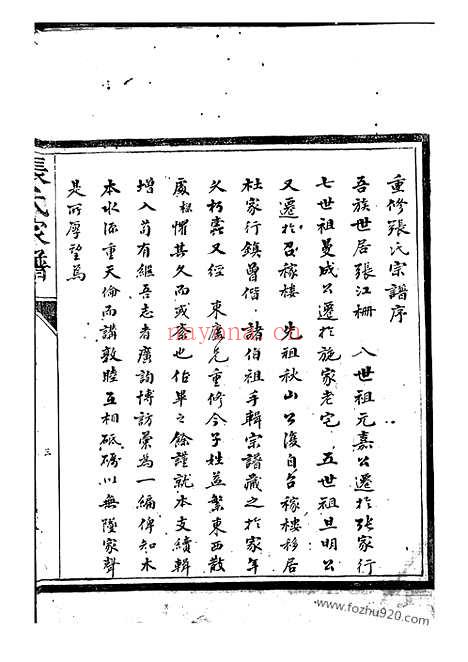 重修張氏宗譜序
吾族世居張江柵　八世祖元嘉公遷於張家行
七世祖曼成公遷於施家老宅　五世祖旦明公
又遷於召稼樓　先祖秋山公復自召稼樓移居
杜家行鎮曾偕　諸伯祖手輯宗譜藏之於家年
久朽蠹又經　東屬兄重修今子姓益繁東西散
處猥懼甚久而或忘也作畢之餘謹就本支續輯
增入苟有繼吾志者廣詢博訪彙為一編俾知木
本水源重天倫而講敦睦互相砥礪以無墜家聲
是所厚望焉
張氏家譜
三
nayona.cn
www.fozhu920.com